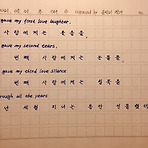 gave my first love laughter.
사 랑 에 게 는 웃 음 을,
gave my second tears.
번 째 사 랑 에 게 는 눈 물 을,
gave my third love silence
번 째 사 랑 에 게 는 침 묵 을
through all the years.
난 세 월 지 나 는 동 안